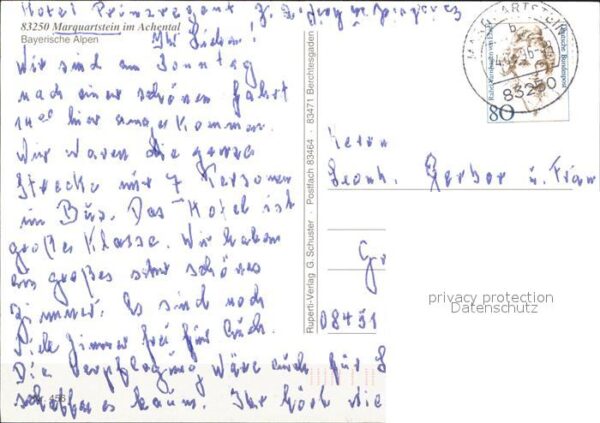 Hotel Prinzregent
83250 Marquartstein im Achental
Bayerische Alpen
Ihr Lieben!
Wir sind am Sonntag
nach einer schönen Fahrt
14°° hier angekommen.
Wir waren die ganze
Strecke nur 7 Personen
im Bus. Das Hotel ist
große Klasse. Wir haben
ein großes sehr schönes
Zimmer. Es sind noch
viele Zimmer frei für Euch.
Die Verpflegung wäre auch für
schaffen es kaum. Ihr hört die
456
Ruperti-Verlag G. Schuster · Postfach 83464 · 83471 Berchtesgaden
MARQUARTSTEIN
b
83250
Deutsche Bundespost
80
Herrn
Leonh. Gerber u. Frau
Gr
08451
privacy protection
Datenschutz